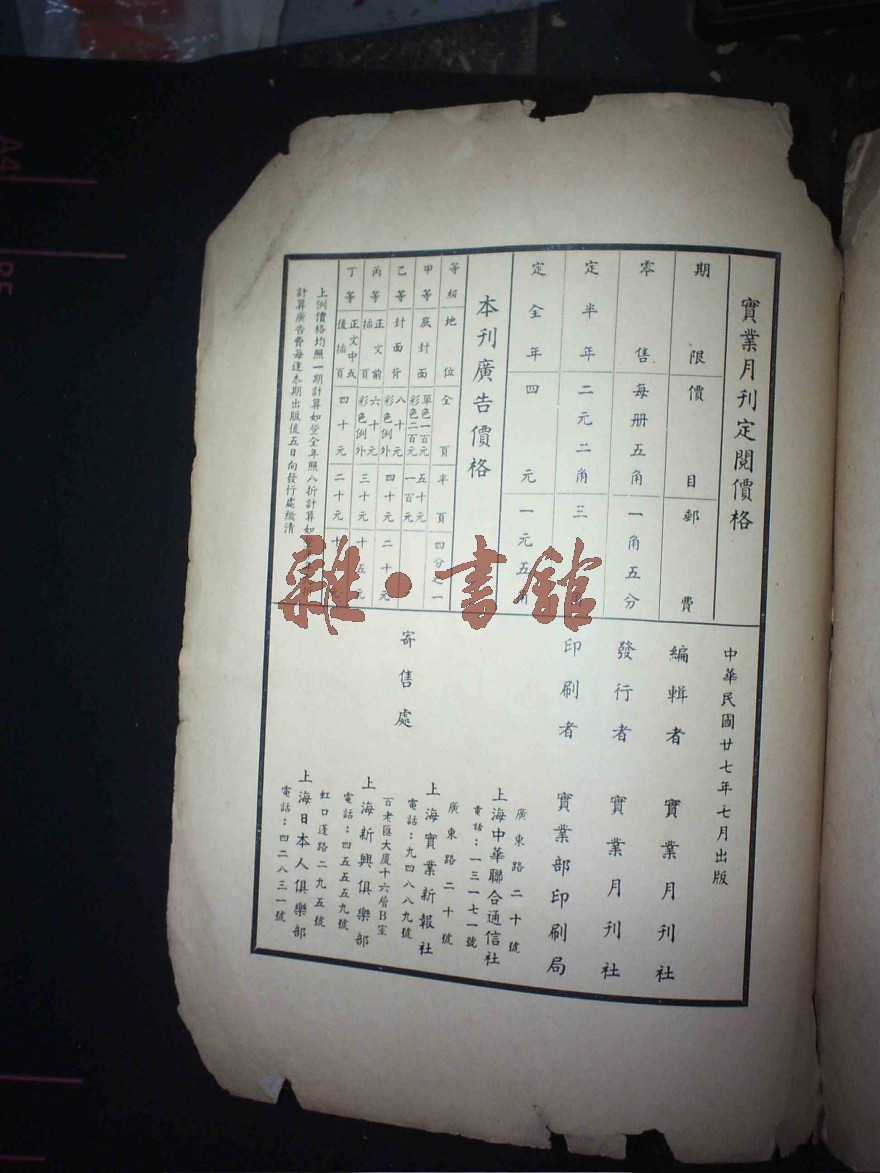 實業月刊定閱價格
期限 價目 郵費
零售 每册五角 一角五分
定半年 二元二角 三
定全年 四元 一元五角
本刊廣告價格
等級 地位 全頁 半頁 四分之一
甲等 底封面 單色一百元 彩色二百元 五十元 一百元
乙等 封面背 八十元 彩色例外 四十元 二十元
丙等 正文前插頁 六十元 彩色例外 三十元 十五元
丁等 正文中或後插頁 四十元 二十元 十
上例價格均照一期計算如登全年照八折計算如
計算廣告費每逢本期出版後五日向發行處繳清
中華民國廿七年七月出版
編輯者 實業月刊社
發行者 實業月刊社
印刷者 實業部印刷局
寄售處
廣東路二十號
上海中華聯合通信社
電話：一三一七一號
廣東路二十號
上海實業新報社
電話：九四八八九號
百老匯大厦十六層B室
上海新興俱樂部
電話：四五五五九號
虹口蓬路二九五號
上海日本人俱樂部
電話：四二八三一號
雜·書館
A4
B5